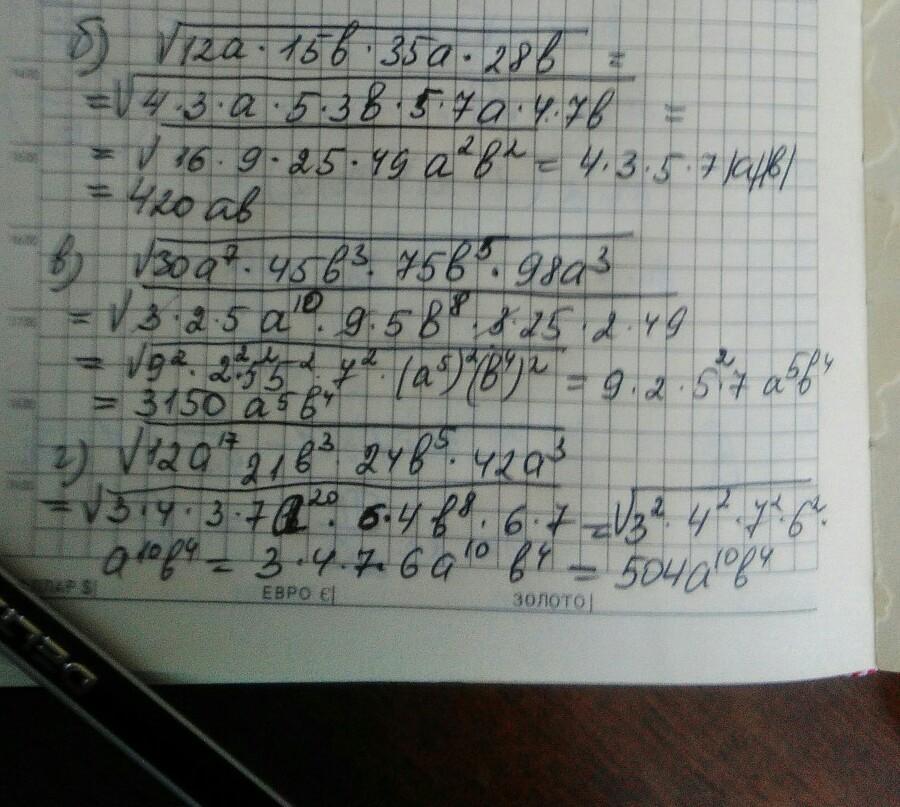 б) √12a · 15в · 35a · 28в =
= √4 · 3 · a · 5 · 3в · 5 · 7a · 4 · 7в =
= √16 · 9 · 25 · 49 a²в² = 4 · 3 · 5 · 7 |a||в|
= 420 aв
в) √30a⁷ · 45в³ · 75в⁵ · 98a³
= √3 · 2 · 5 a¹⁰ · 9 · 5в⁸ · 3 · 25 · 2 · 49
= √9² · 2² · 5² 5² · 7² · (a⁵)² (в⁴)² = 9 · 2 · 5² 7 a⁵в⁴
= 3150 a⁵в⁴
г) √12a¹⁷ 21в³ 24в⁵ · 42a³
= √3 · 4 · 3 · 7 a²⁰ · 6 · 4в⁸ · 6 · 7 = √3² · 4² · 7² · 6² ·
a¹⁰в⁴ = 3 · 4 · 7 · 6a¹⁰ в⁴ = 504a¹⁰в⁴
ЕВРО €| ЗОЛОТО|